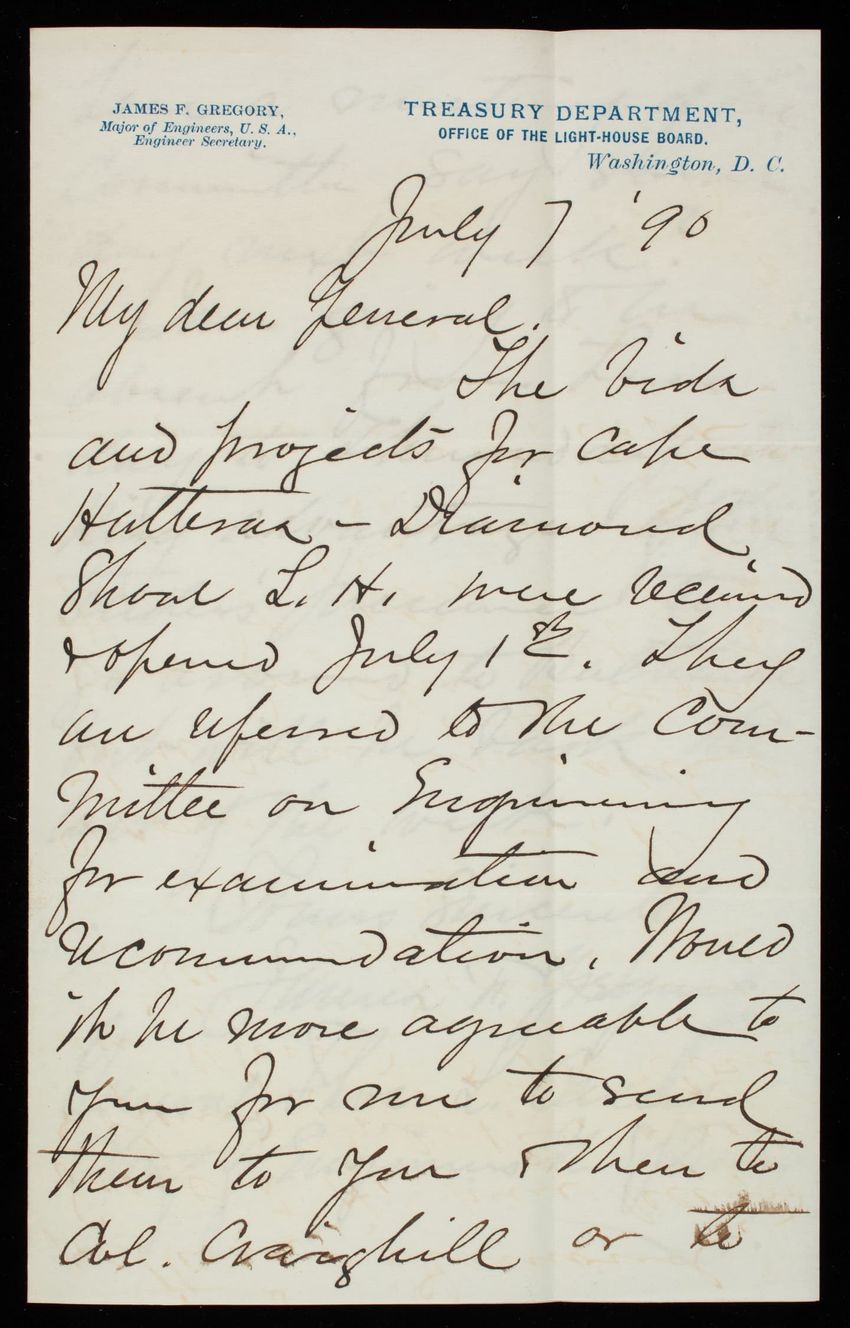 JAMES F. GREGORY,
Major of Engineers, U. S. A.,
Engineer Secretary.
TREASURY DEPARTMENT,
OFFICE OF THE LIGHT-HOUSE BOARD.
Washington, D. C.
July 7 '90
My dear General.
The bids
and projects for Cape
Hatteras - Diamond
Shoal L. H. were received
& opened July 1st. They
are referred to the Com-
mittee on Engineering
for examination and
recommendation. Would
it be more agreeable to
you for me to send
them to you & then to
Col. Craighill or to